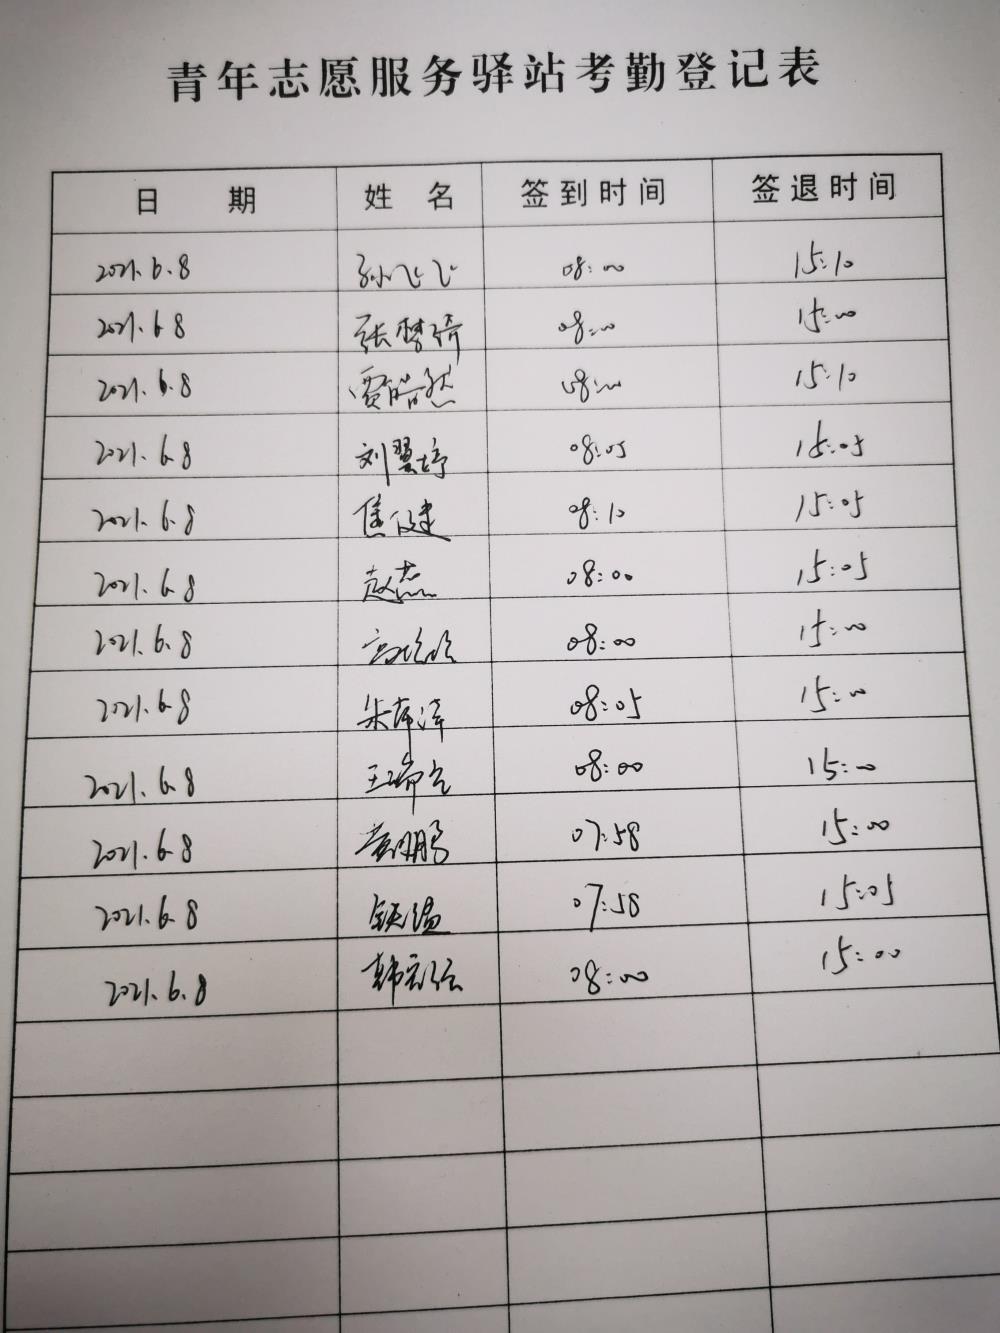 青年志愿服务驿站考勤登记表
日 期 姓 名 签到时间 签退时间
2021.6.8 孙飞飞 08:00 15:10
2021.6.8 张梦琦 08:00 15:00
2021.6.8 贾皓然 08:00 15:10
2021.6.8 刘翼婷 08:05 15:05
2021.6.8 焦俊建 08:10 15:05
2021.6.8 赵磊 08:00 15:05
2021.6.8 08:00 15:00
2021.6.8 08:05 15:00
2021.6.8 08:00 15:00
2021.6.8 07:58 15:00
2021.6.8 07:58 15:05
2021.6.8 08:00 15:00